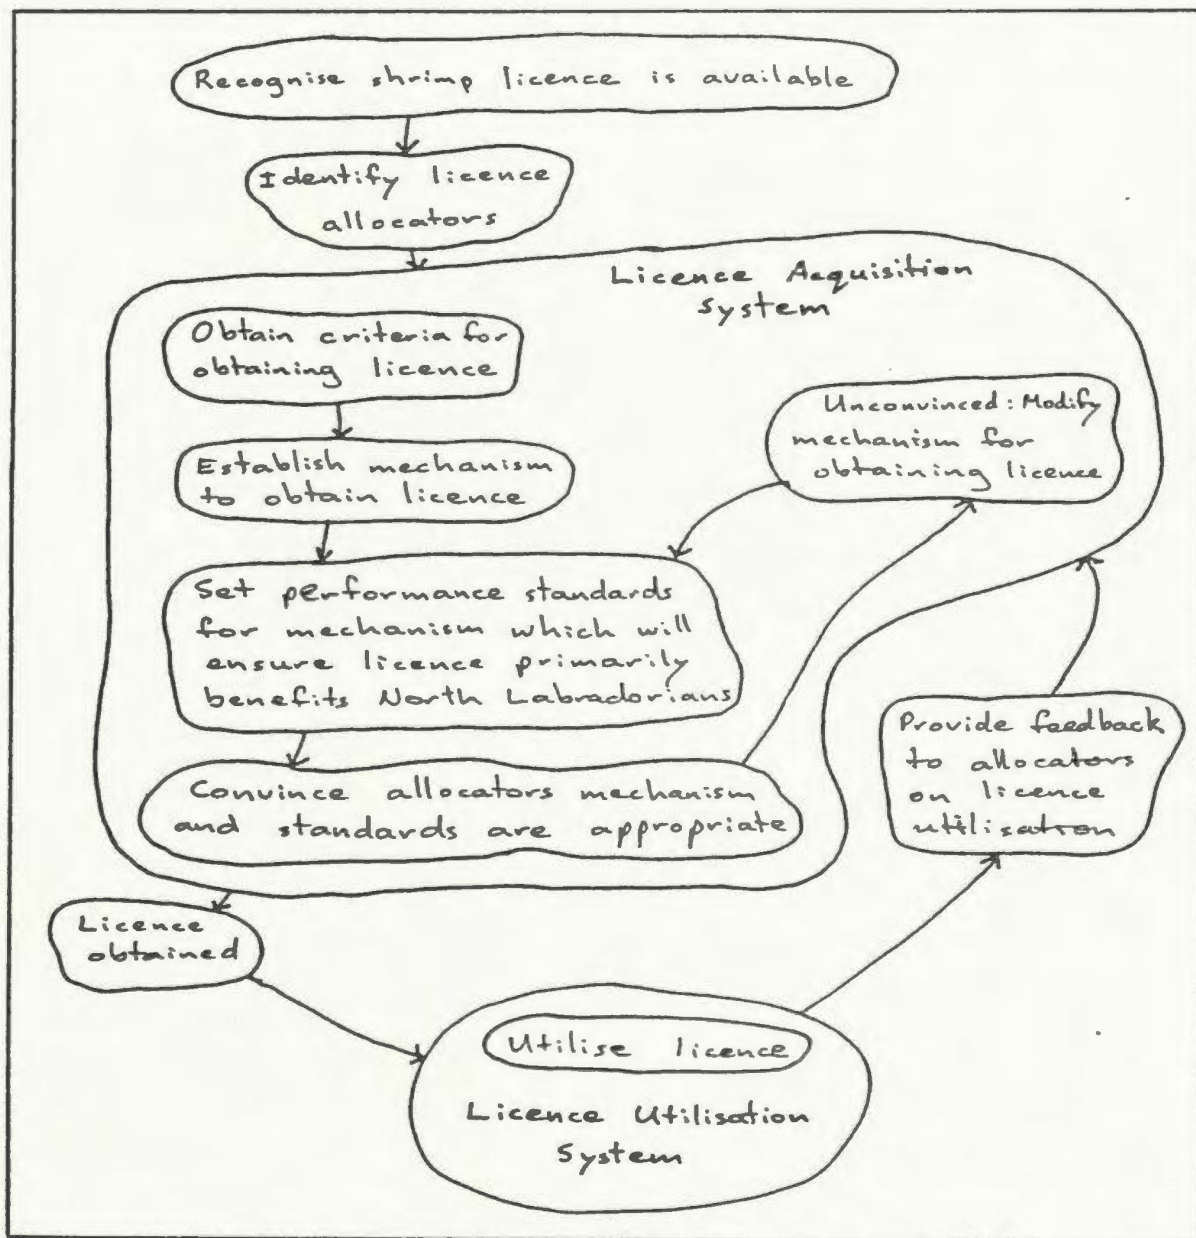 Recognise shrimp licence is available
Identify licence
allocators
Licence Acquisition
System
Obtain criteria for
obtaining licence
Unconvinced: Modify
mechanism for
obtaining licence
Establish mechanism
to obtain licence
Set performance standards
for mechanism which will
ensure licence primarily
benefits North Labradorians
Convince allocators mechanism
and standards are appropriate
Provide feedback
to allocators
on licence
utilisation
Licence
obtained
Utilise licence
Licence Utilisation
System